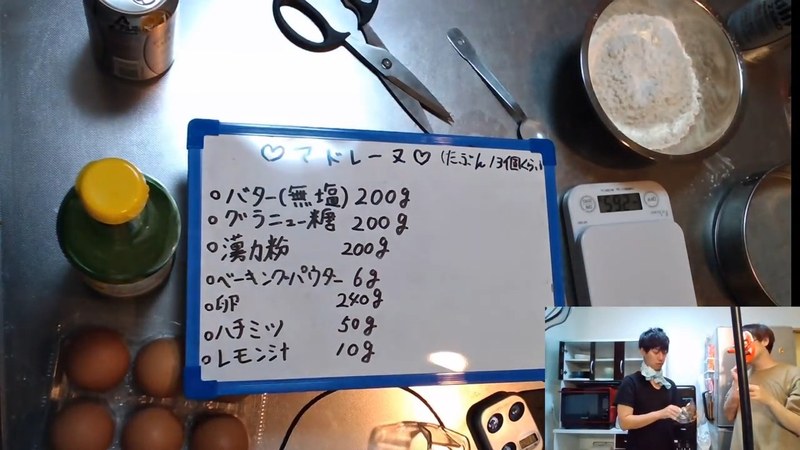 ♡マドレーヌ♡(たぶん13個くらい
○バター(無塩)200g
○グラニュー糖 200g
○漢力粉 200g
○ベーキングパウダー 6g
○卵 240g
○ハチミツ 50g
○レモン汁 10g